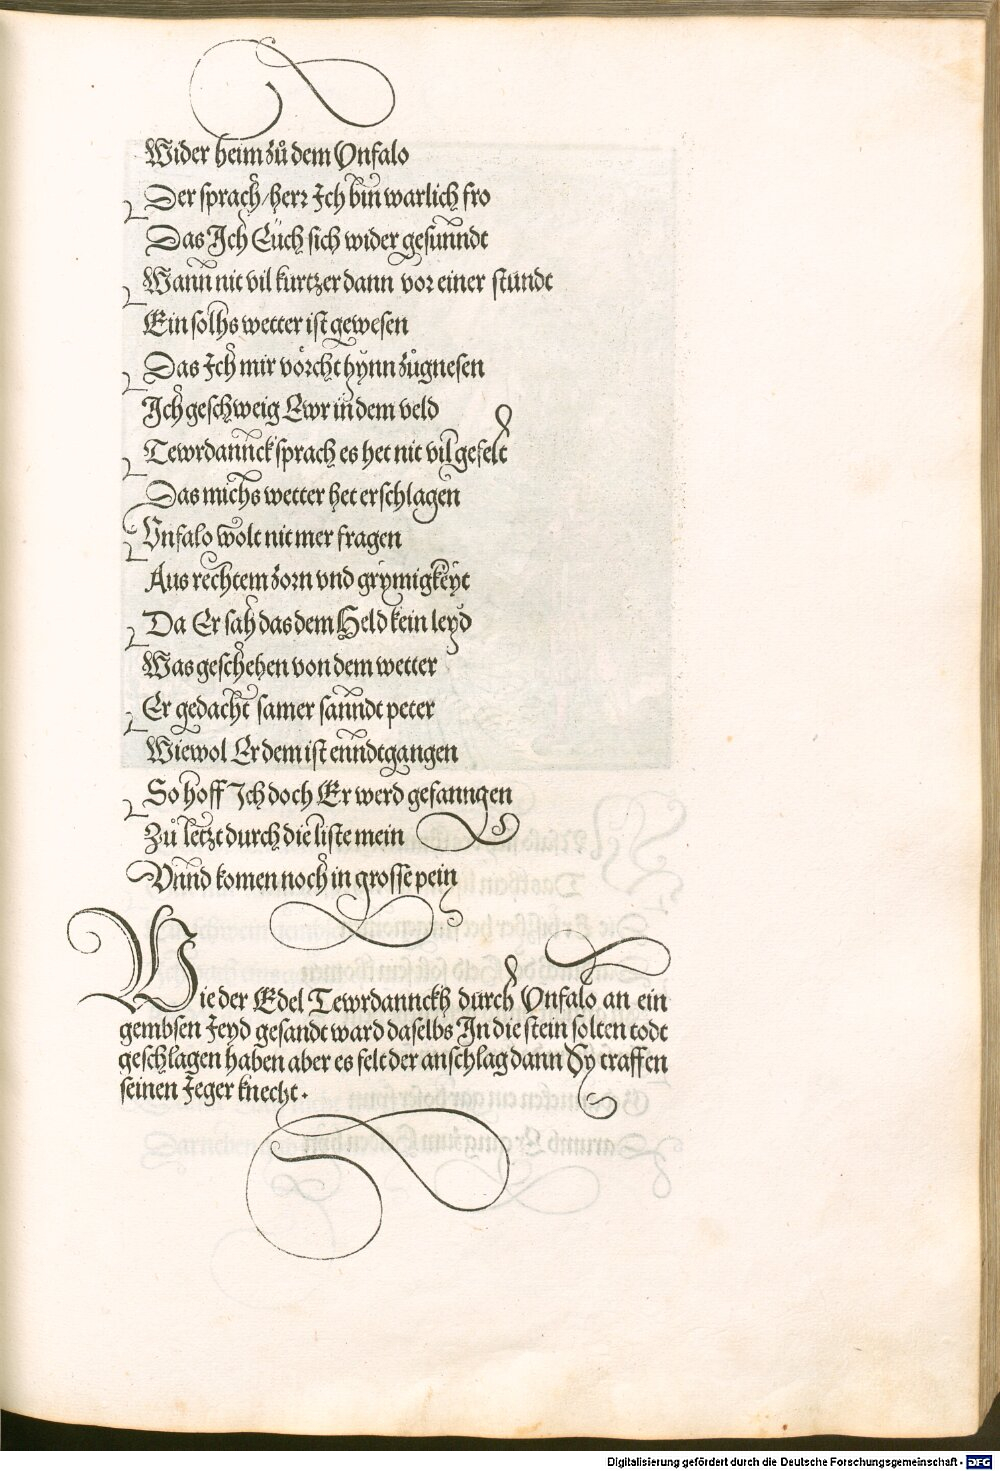 Wider heim zů dem Vnfalo
Der sprach/herr Ich bin warlich fro
Das Ich Eüch sich wider gesunndt
Wann nit vil kurtzer dann vor einer stundt
Ein solhs wetter ist gewesen
Das Ich mir vörcht hynn zůgnesen
Ich geschweig Ewr in dem veld
Tewrdannck sprach es het nit vil gefelt
Das michs wetter het erschlagen
Vnfalo wolt nit mer fragen
Aus rechtem zorn vnd grymigkeyt
Da Er sah das dem Held kein leyd
Was geschehen von dem wetter
Er gedacht samer sanndt peter
Wiewol Er dem ist enndtgangen
So hoff Ich doch Er werd gefanngen
Zů letzt durch die liste mein
Vnnd komen noch in grosse pein
Wie der Edel Tewrdannckh durch Vnfalo an ein
gembsen Jeyd gesandt ward daselbs In die stein solten todt
geschlagen haben aber es felt der anschlag dann Sy traffen
seinen Jeger knecht.
Digitalisierung gefördert durch die Deutsche Forschungsgemeinschaft - DFG